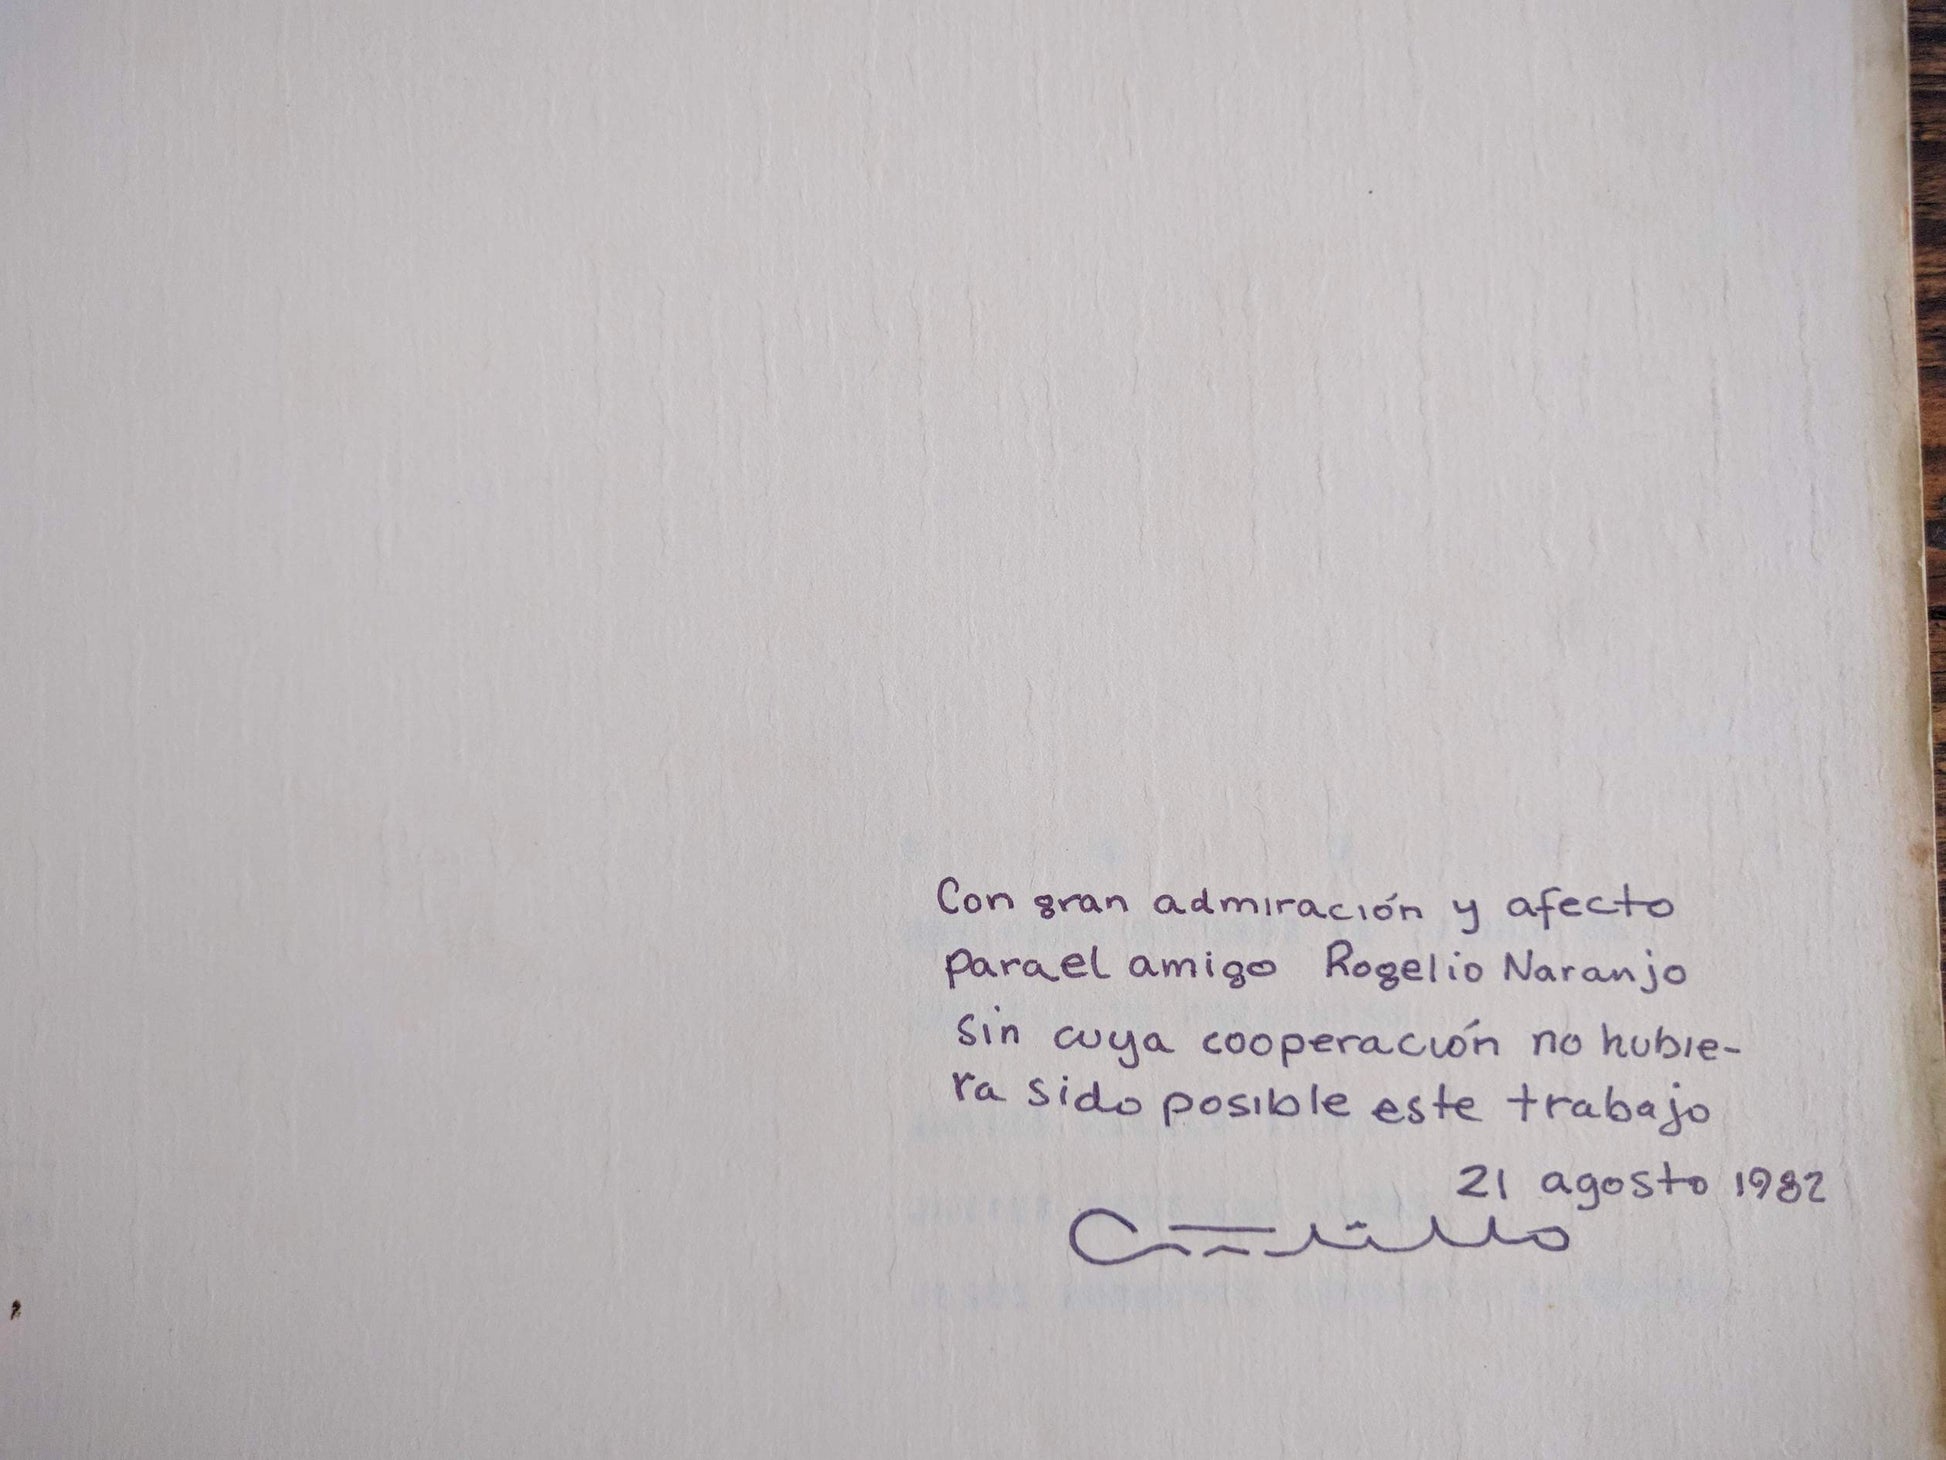 Con gran admiración y afecto
para el amigo Rogelio Naranjo
sin cuya cooperación no hubie-
ra sido posible este trabajo
21 agosto 1982